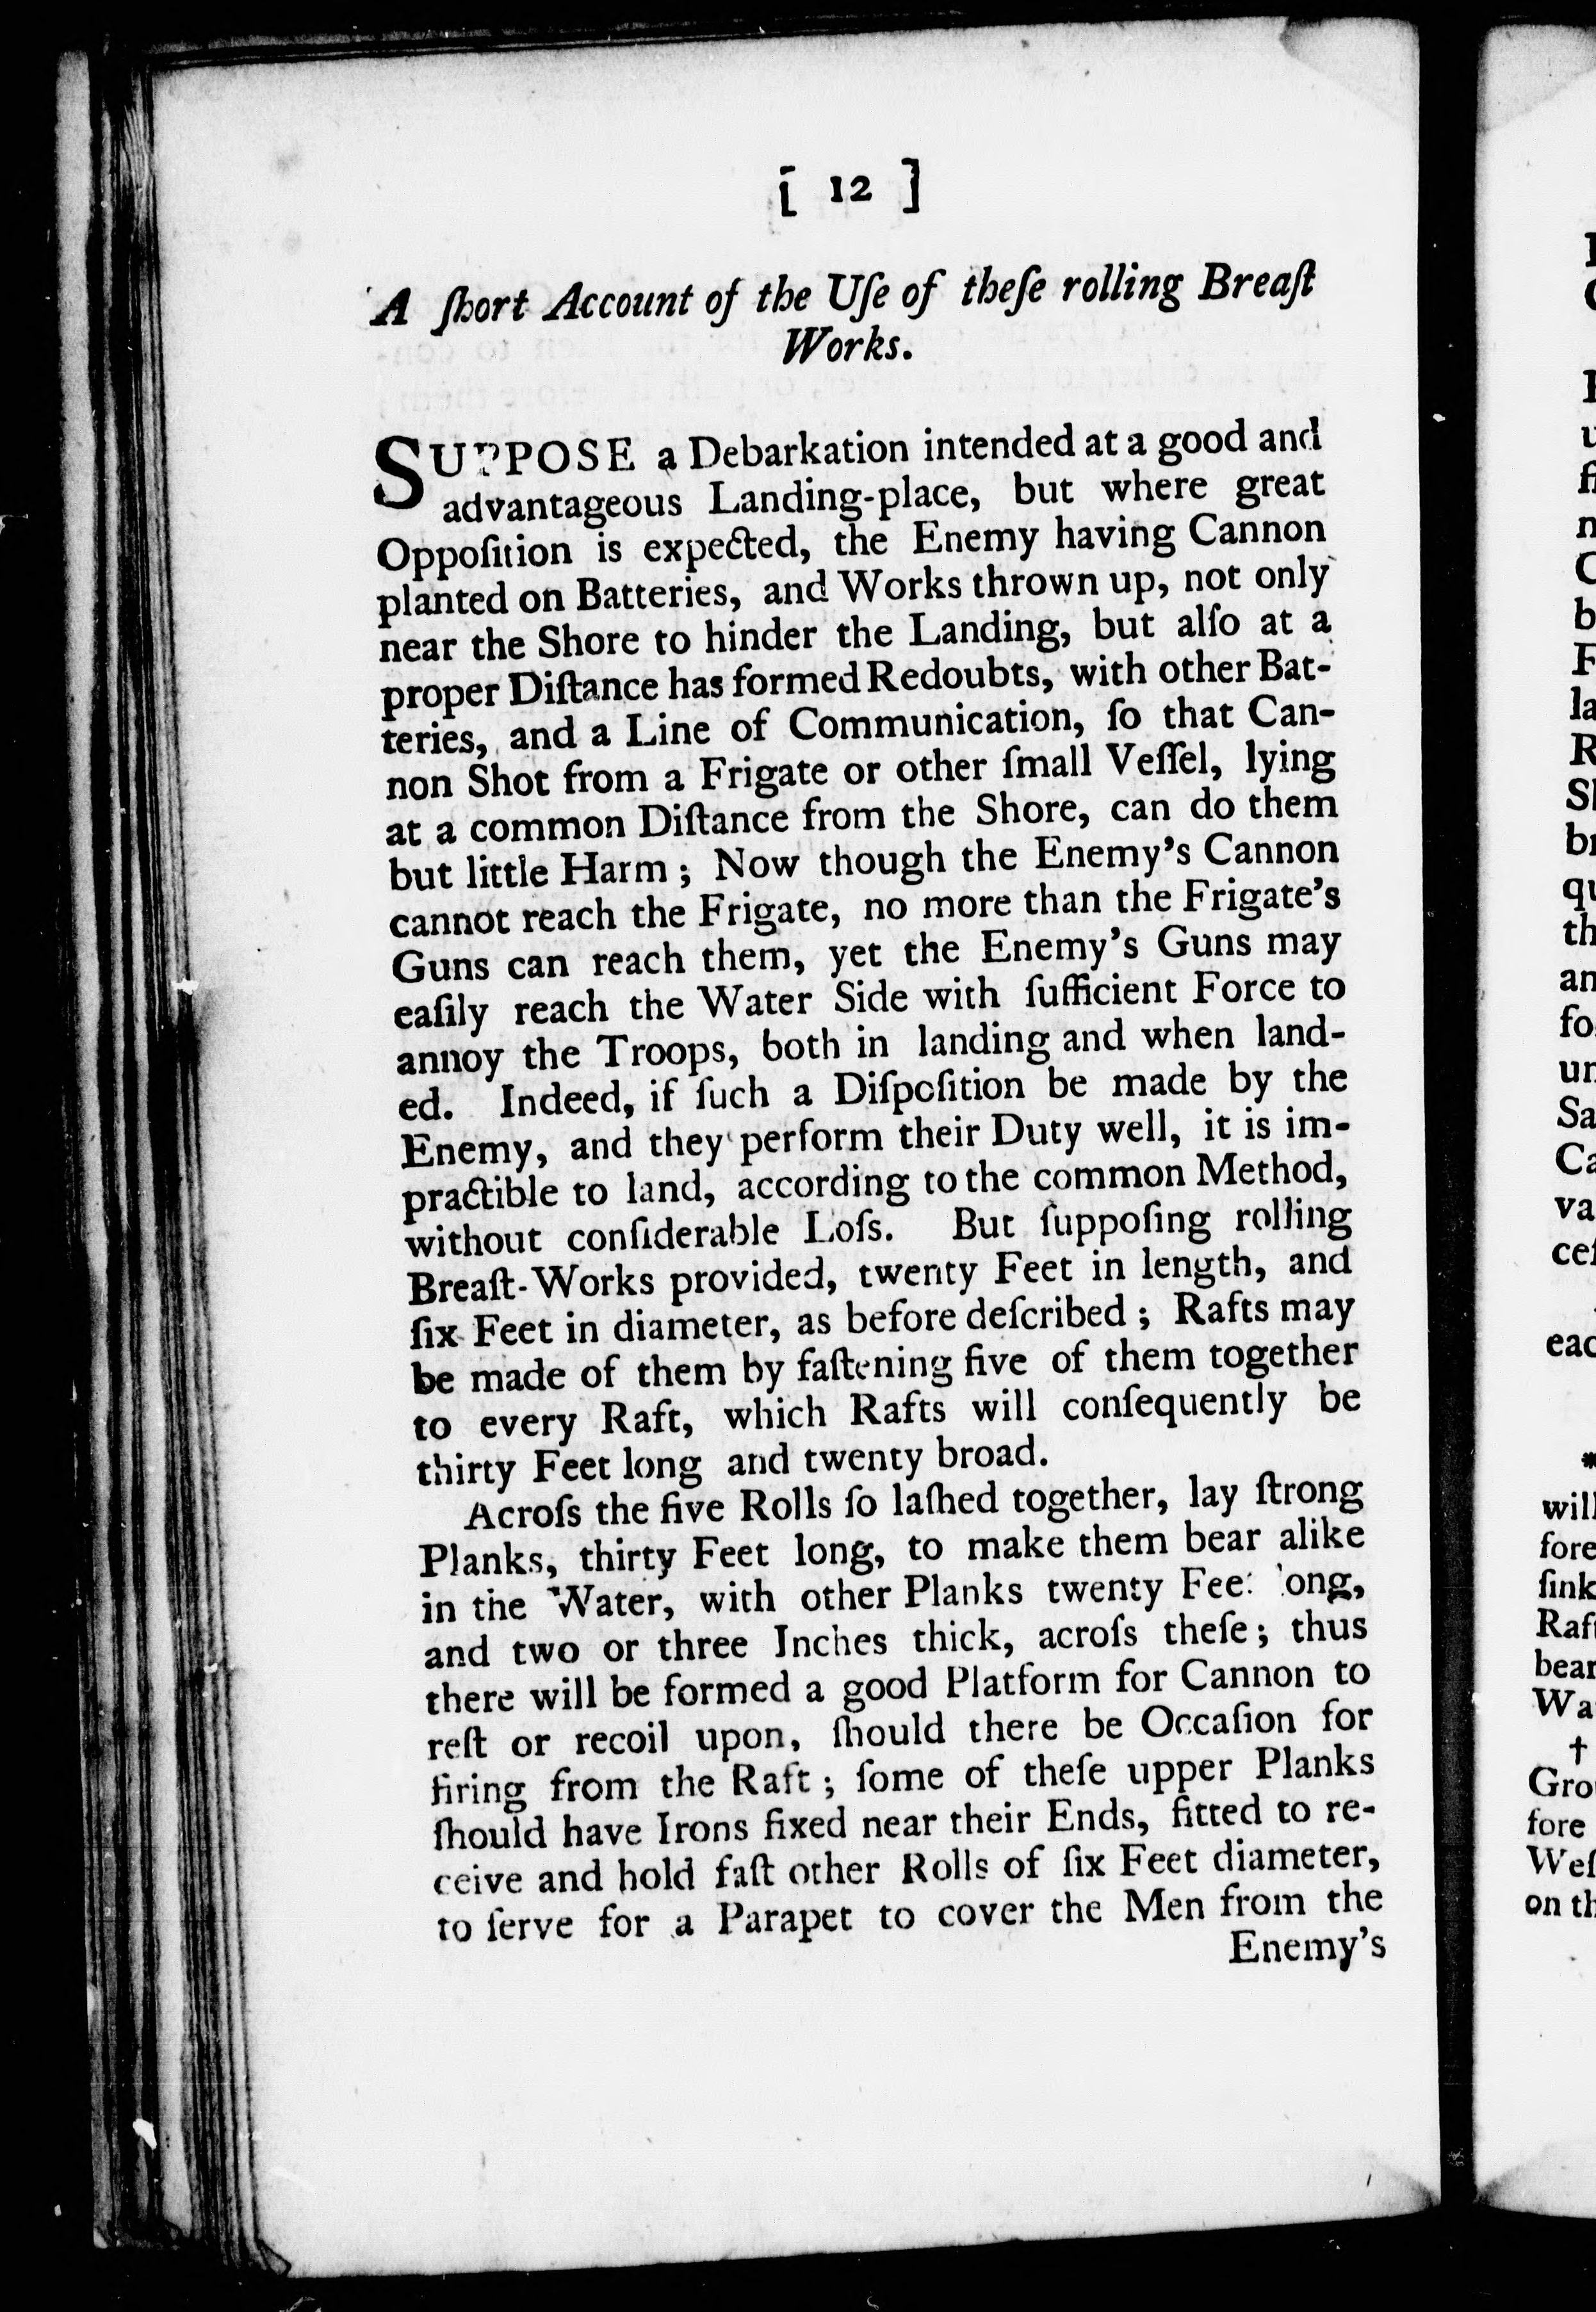 [ 12 ]
A ſhort Account of the Uſe of theſe rolling Breaſt
Works.
SUPPOSE a Debarkation intended at a good and
advantageous Landing-place, but where great
Oppoſition is expected, the Enemy having Cannon
planted on Batteries, and Works thrown up, not only
near the Shore to hinder the Landing, but alſo at a
proper Diſtance has formed Redoubts, with other Bat-
teries, and a Line of Communication, ſo that Can-
non Shot from a Frigate or other ſmall Veſſel, lying
at a common Diſtance from the Shore, can do them
but little Harm; Now though the Enemy's Cannon
cannot reach the Frigate, no more than the Frigate's
Guns can reach them, yet the Enemy's Guns may
eaſily reach the Water Side with ſufficient Force to
annoy the Troops, both in landing and when land-
ed. Indeed, if ſuch a Diſpoſition be made by the
Enemy, and they perform their Duty well, it is im-
practible to land, according to the common Method,
without conſiderable Loſs. But ſuppoſing rolling
Breaſt-Works provided, twenty Feet in length, and
ſix Feet in diameter, as before deſcribed; Rafts may
be made of them by faſtening five of them together
to every Raft, which Rafts will conſequently be
thirty Feet long and twenty broad.
Acroſs the five Rolls ſo laſhed together, lay ſtrong
Planks, thirty Feet long, to make them bear alike
in the Water, with other Planks twenty Feet long,
and two or three Inches thick, acroſs theſe; thus
there will be formed a good Platform for Cannon to
reſt or recoil upon, ſhould there be Occaſion for
firing from the Raft; ſome of theſe upper Planks
ſhould have Irons fixed near their Ends, fitted to re-
ceive and hold faſt other Rolls of ſix Feet diameter,
to ſerve for a Parapet to cover the Men from the
Enemy's